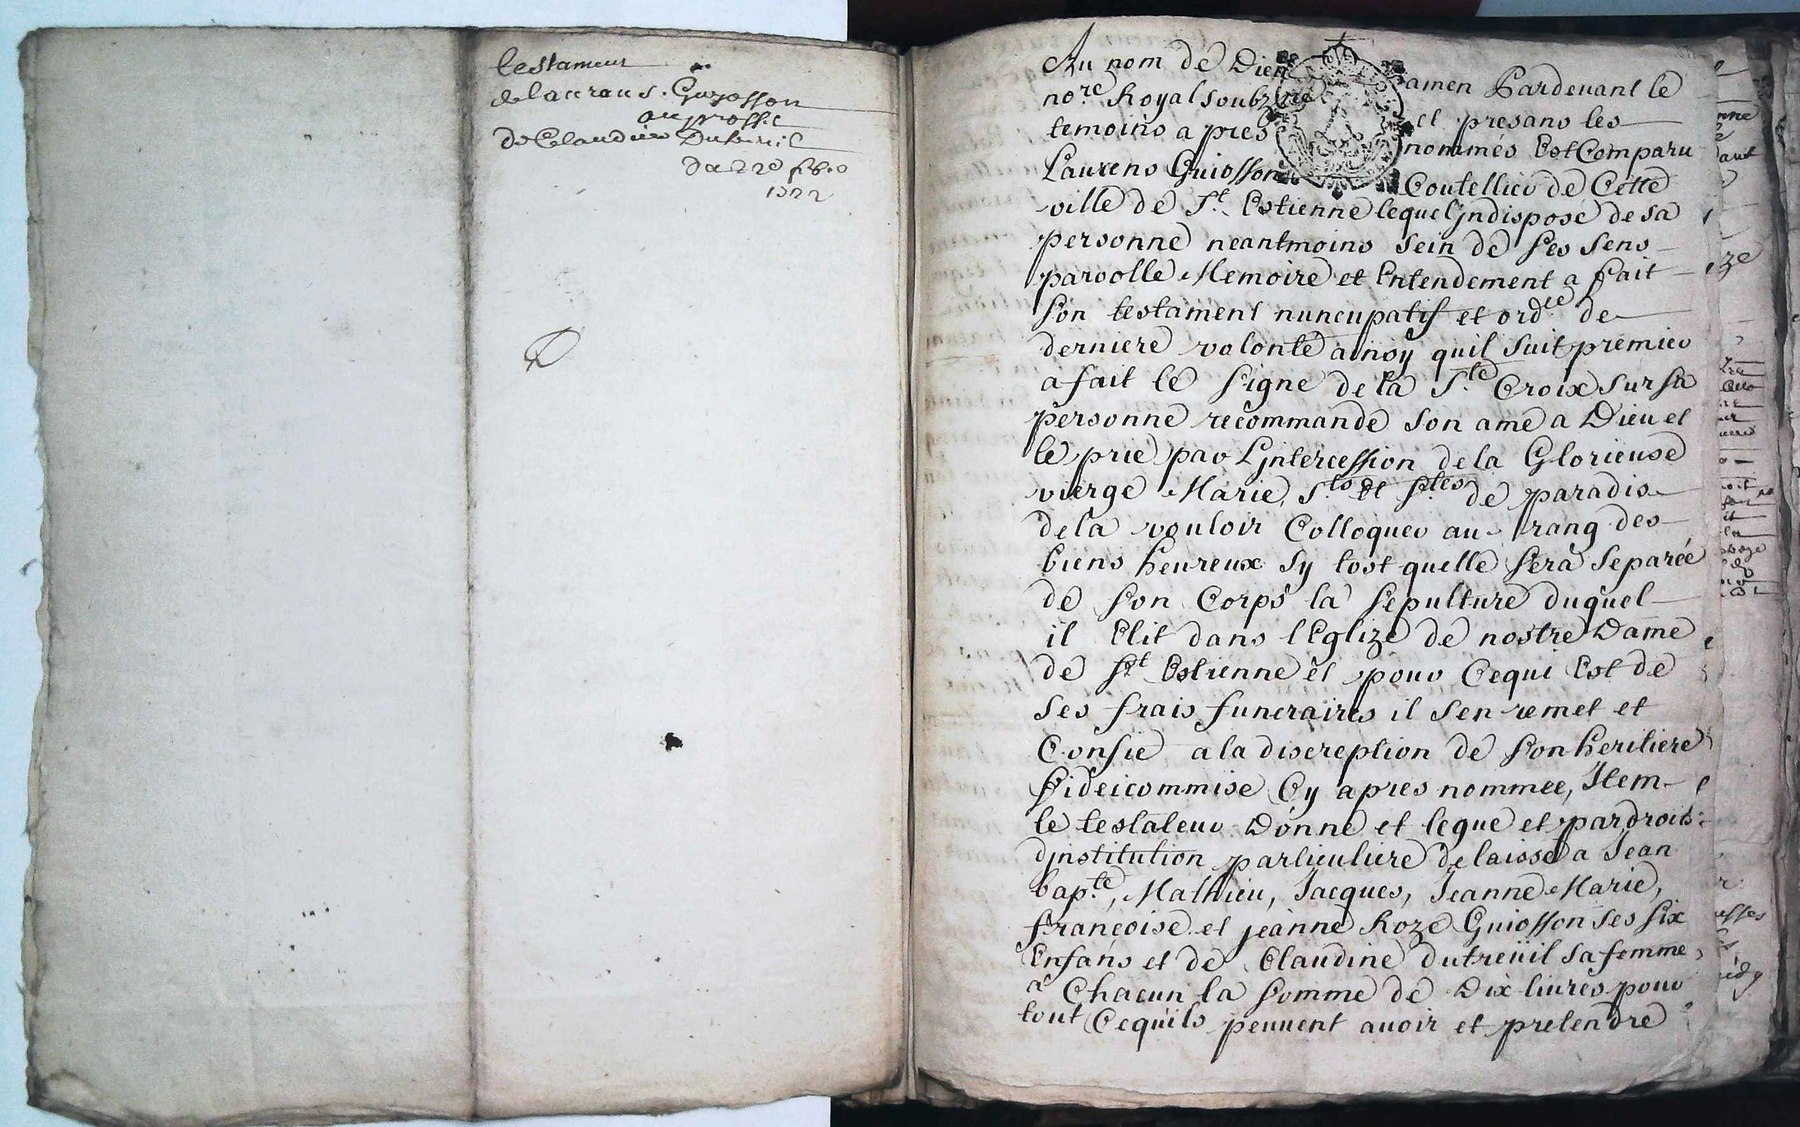 testament
de laurans Guyosson
au proffit
de Claudine Dutreuil
du 22e
1722
Au nom de Dieu amen Pardevant le
nore. Royal soubzne et présans les
temoins apres nommés Est Comparu
Laurens Guiosson Coutellier de Cette
ville de St. Estienne lequel jndisposé de sa
personne neantmoins sein de ses sens
parolle Memoire et Entendement a fait
son testament nuncupatif et ordce de
derniere volonté ainsy quil suit premier
a fait le signe de la Ste. Croix sur sa
personne recommande son ame a Dieu et
le prie par Ljntercession de la Glorieuse
vierge Marie, Sts et Stes de paradis
de la vouloir Colloquer au rang des
biens heureux sy tost quelle sera separée
de son Corps la sepulture duquel
il Elit dans l'Eglize de nostre Dame
de St Estienne et pour Cequi Est de
ses frais funeraires il sen remet et
Confie a la discreption de son heritiere
fideicommise Cy apres nommée, Item
le testateur Donne et legue et par droits
djnstitution particuliere delaisse a Jean
bapte., Mathieu, Jacques, Jeanne Marie,
françoise et jeanne Roze Guiosson ses six
Enfans et de Claudine dutreüil sa femme
a Chacun la somme de Dix liures pour
tout Cequils peuuent auoir et pretendre